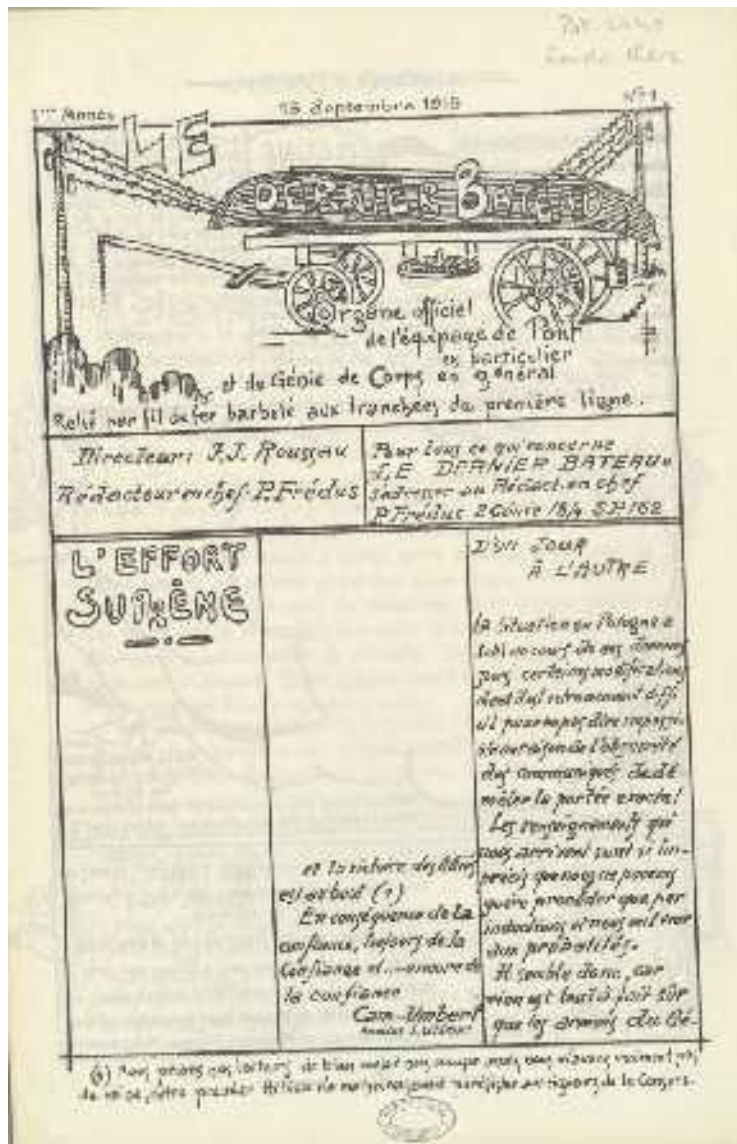 1ère Année
15 Septembre 1915
N°1
LE
DERNIER BATEAU
Organe officiel
de l'équipage de Pont
en particulier
et du Génie de Corps en général
Relié par fil de fer barbelé aux tranchées de première ligne.
Directeur: J.J. Rousseau
Rédacteur en chef. P. Frédus
Pour tous ce qui concerne
"LE DERNIER BATEAU"
s'adresser au Rédact. en chef
P. Fréduc 2 Génie 15/4 S.P. 162
L'EFFORT
SUPRÊME
et la victoire des Alliés
est au bout (1)
En conséquence de la
confiance, toujours de la
confiance et... encore de
la confiance
Cam-Umbert
D'UN JOUR
À L'AUTRE
La situation en Pologne a
subi au cours de ces derniers
jours certaines modifications
dont il est extrêmement diffi
cil pour ne pas dire impossi-
ble en raison de l'obscurité
des communiqués de dé
mêler la portée exacte!
Les renseignements qui
nous arrivent sont si im-
précis que nous ne pouvons
guère procéder que par
inductions et nous en tenir
aux probalités.
Il semble donc, car
rien est tout à fait sûr
que les armées du Gé-
(1) Nous prions nos lecteurs de bien